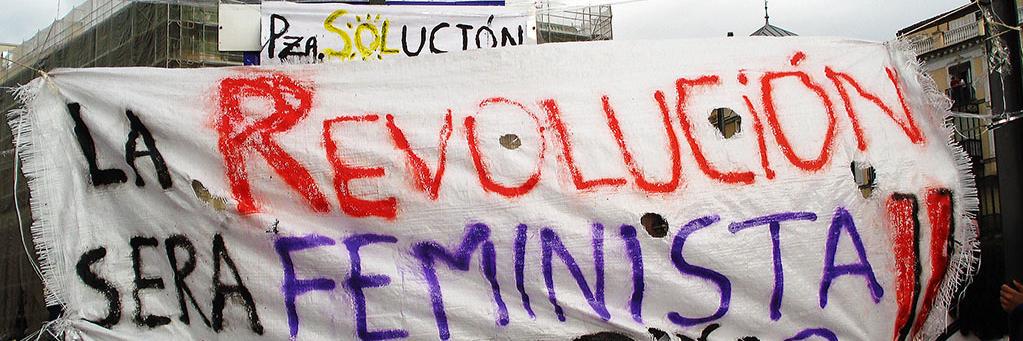 PZA. SOLUCIÓN
LA REVOLUCIÓN
SERA FEMINISTA!!